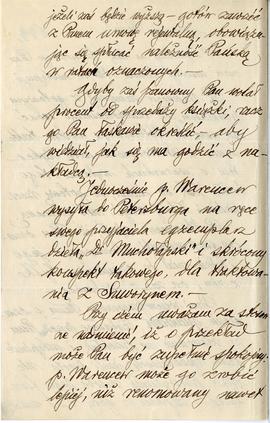 jeżeli zaś będzie wyższą – gotów zawrzeć
z Panem umowę repulalną, obowiązu-
jąc się spłacać należność Pańską
w ratach oznaczonych. –
Gdyby zaś szanowny Pan wolał
procent od sprzedaży książki, racz
go Pan łaskawie określić – aby
wiedział, jak się ma godzić z na-
kładcą. –
Jednocześnie p. Warencew
wysyła do Petersburga na ręce
swego przyjaciela egzemplarz
dzieła, Dr Muchołapski i skrócony
konspekt takowego, dla traktowa-
nia z Suworynem. –
Przy czem uważam za
nie nadmienić, iż o przekład
może Pan być zupełnie spokojny.
p. Warencew może go zrobić
lepiej, niż renomowany nawet